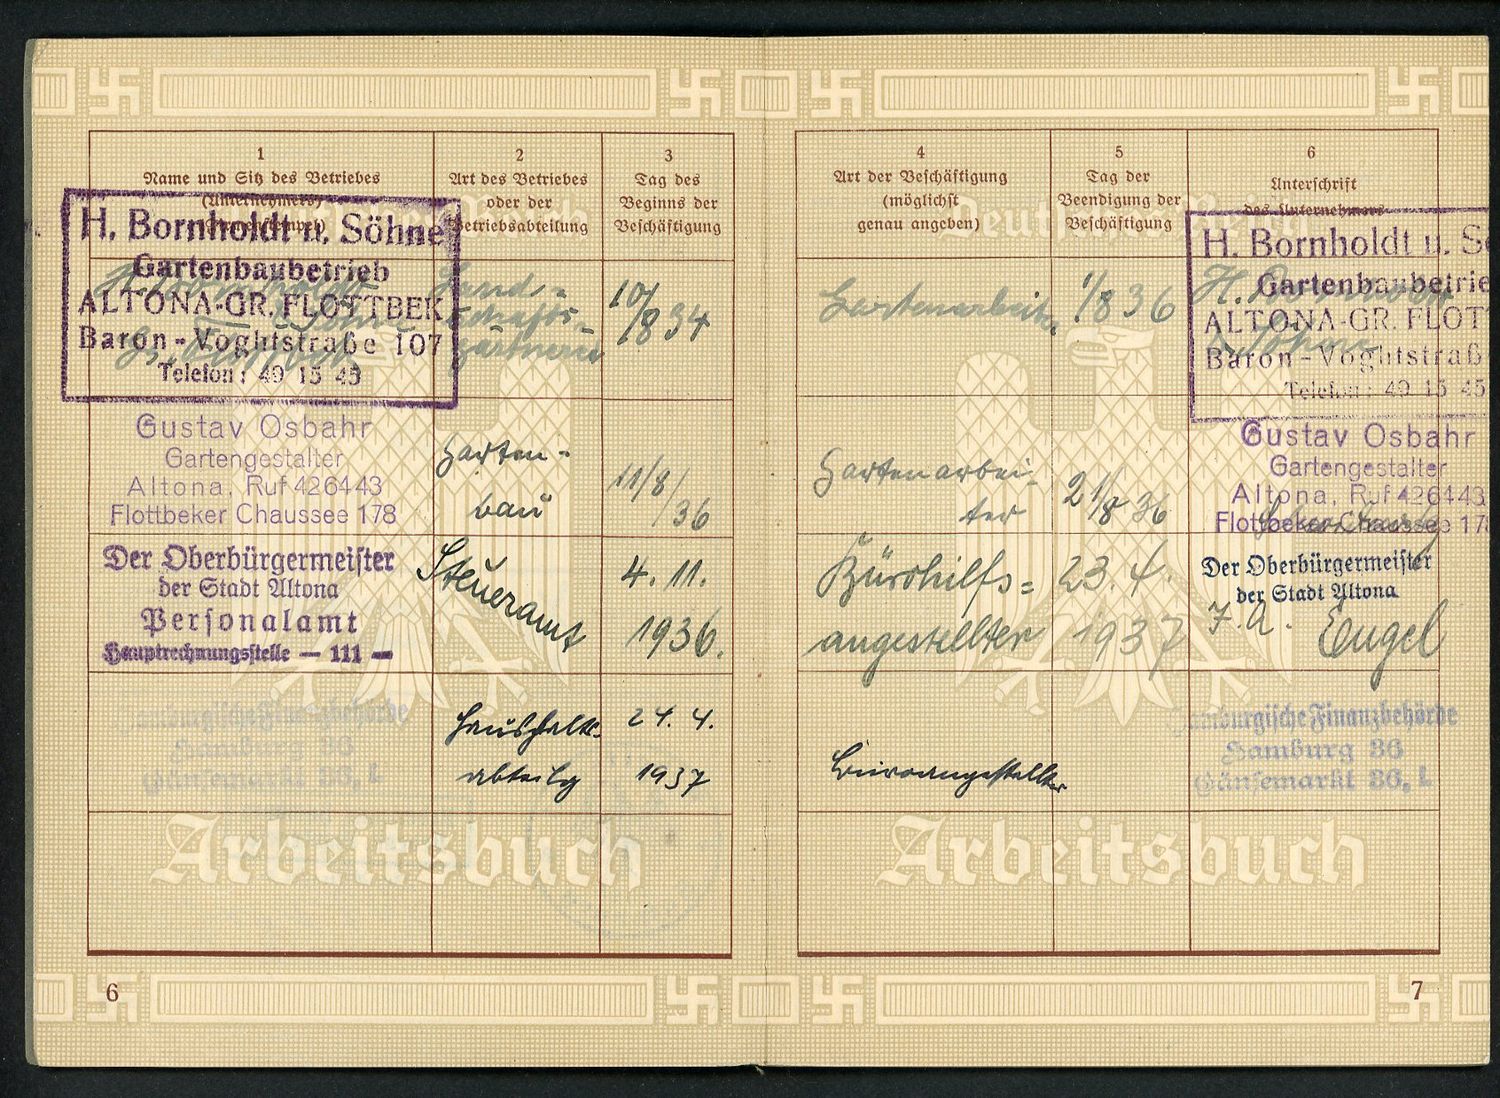 1
Name und Sitz des Betriebes
(Unternehmers)
2
Art des Betriebes
oder der
Betriebsabteilung
3
Tag des
Beginns der
Beschäftigung
H. Bornholdt u. Söhne
Gartenbaubetrieb
ALTONA-GR. FLOTTBEK
Baron-Voghtstraße 107
Telefon: 49 15 45
H. Bornholdt
& Söhne
Gr. Flottbek
Land-
schafts-
gärtnerei
10/
/8 34
Gustav Osbahr
Gartengestalter
Altona, Ruf 426443
Flottbeker Chaussee 178
Garten-
bau
11/8/
/36
Der Oberbürgermeister
der Stadt Altona
Personalamt
Hauptrechnungsstelle — 111 —
Steueramt
4. 11.
1936.
Hamburgische Finanzbehörde
Hamburg 36
Gänsemarkt 36, I.
Haushalts-
abteilg
24. 4.
1937
Deutsches Reich
Arbeitsbuch
6
4
Art der Beschäftigung
(möglichst
genau angeben)
5
Tag der
Beendigung der
Beschäftigung
6
Unterschrift
des Unternehmers
H. Bornholdt u. Sö
Gartenbaubetrie
ALTONA-GR. FLOTT
Baron-Voghtstraß
Telefon: 49 15 45
Gartenarbeiter
1/8 36
H. Bornholdt
& Söhne
Gustav Osbahr
Gartengestalter
Altona, Ruf 426443
Flottbeker Chaussee 178
Gartenarbei-
ter
21/8 36
Der Oberbürgermeister
der Stadt Altona
Bürohilfs-
angestellter
23. 4.
1937
I. A. Engel
Hamburgische Finanzbehörde
Hamburg 36
Gänsemarkt 36, I.
Büroangestellter
Deutsches Reich
Arbeitsbuch
7